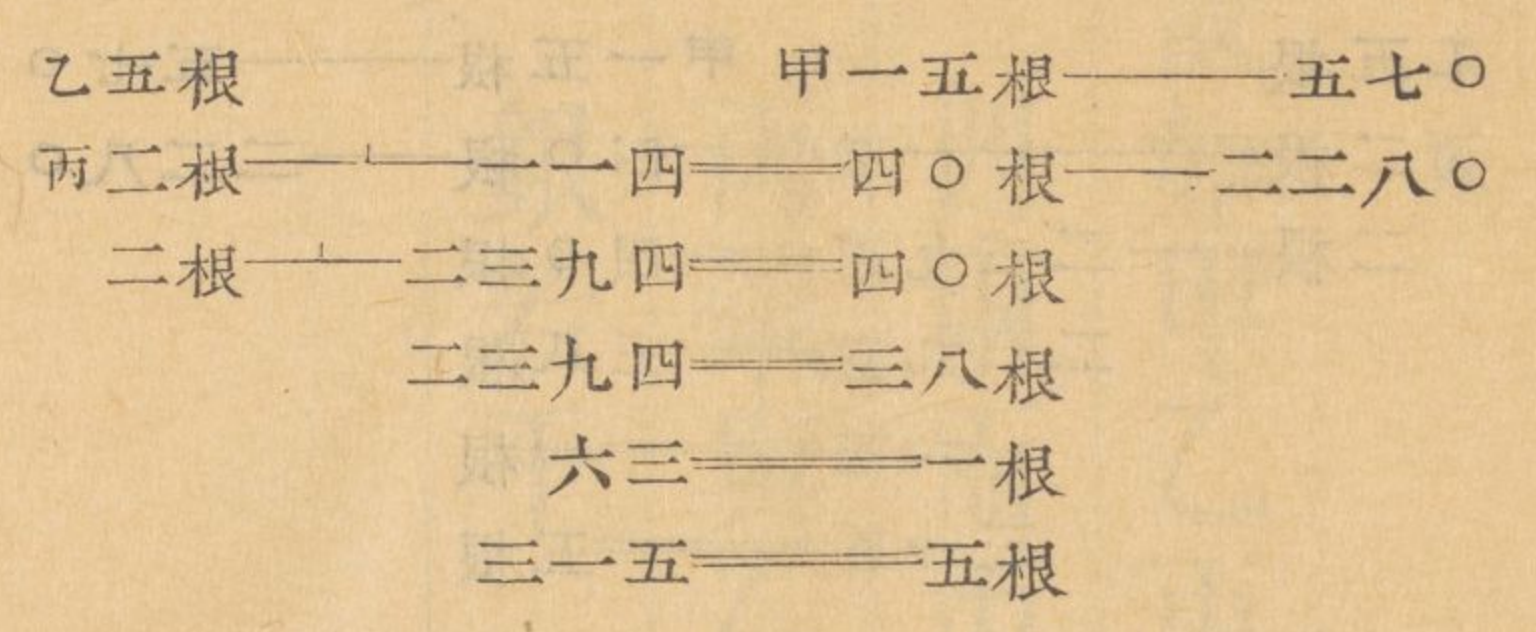 乙五根 甲一五根——五七〇
丙二根—⊥—一一四══四〇根——二二八〇
二根—⊥—二三九四══四〇根
二三九四══三八根
六三══一根
三一五══五根